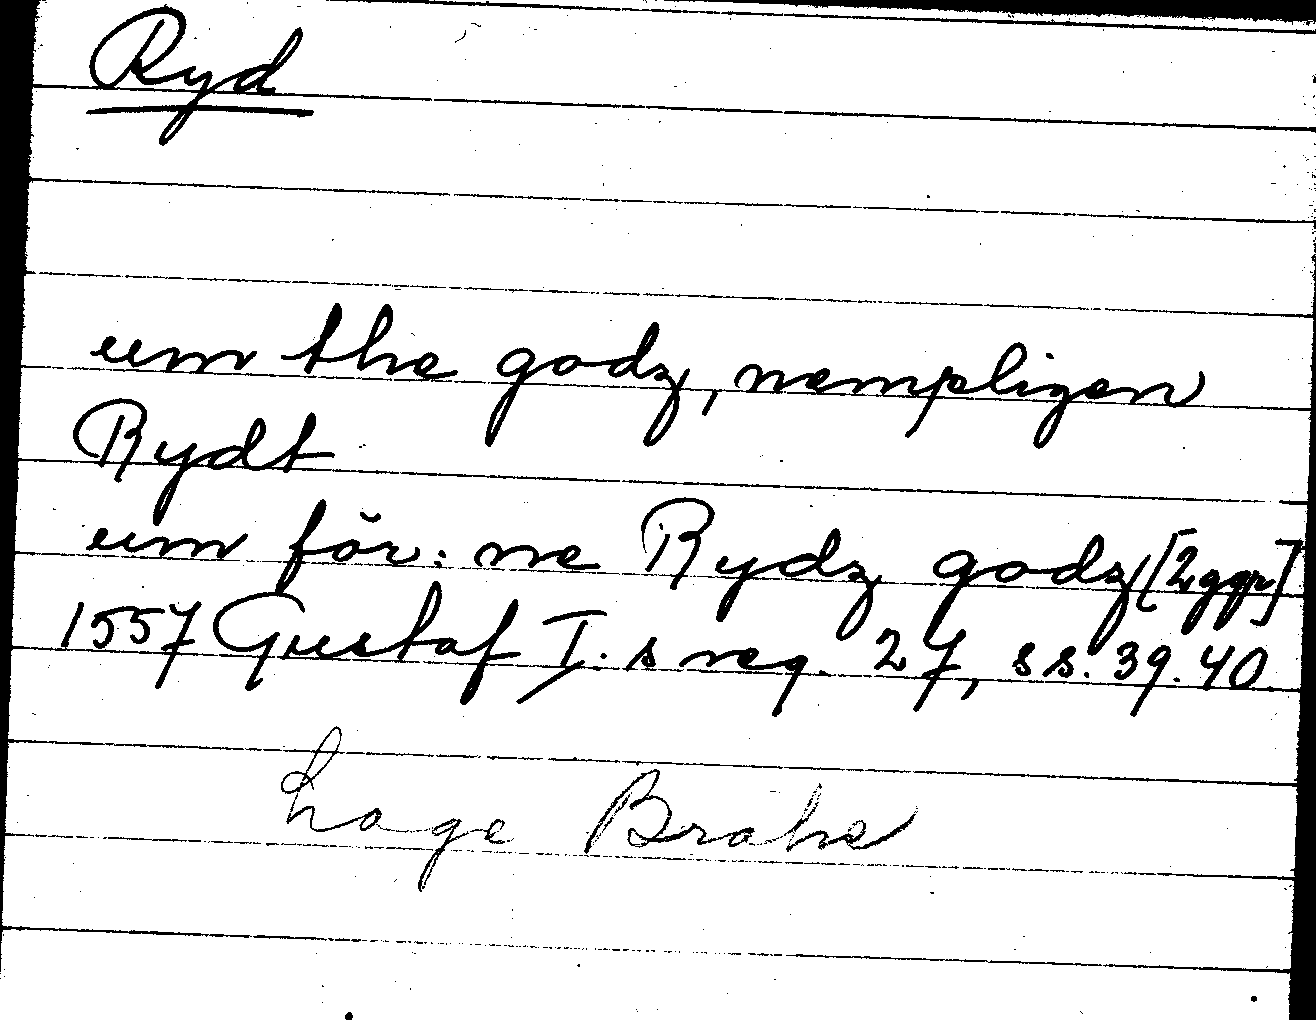 Ryd
um the godz, nempligen
Rydt
um för: ne Rydz godz [2 ggr]
1557 Gustaf I. s reg. 27, ss. 39. 40
Lage Brahe